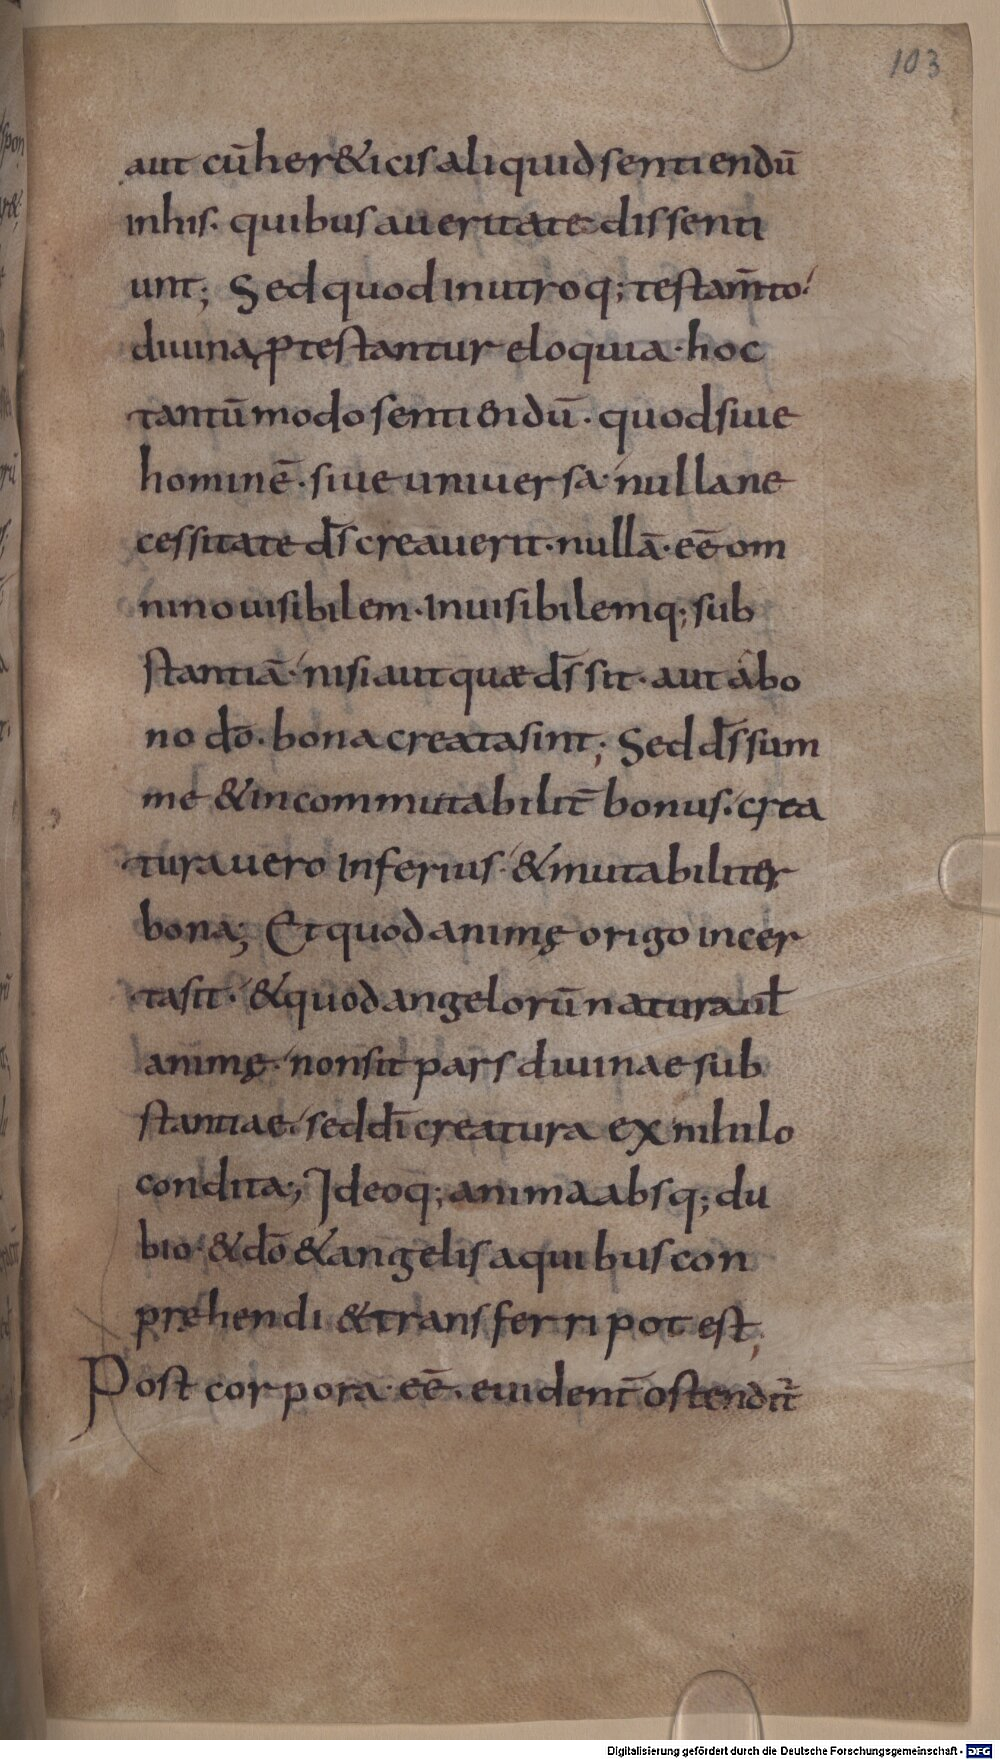 103
aut cū her&icis aliquid sentiendū
inhis. quibus aueritate dissenti
unt; Sed quod inutroq; testam̄to.
diuina p̱testantur eloquia· hoc
tantū modo sentiendū· quod siue
hominē· siue uniuersa· nulla ne
cessitate d̄s creauerit· nullā· eē om
nino uisibilem· Inuisibilemq; sub
stantiā· nisi aut quæ d̄s sit· aut abo
no dō· bona creata sint; Sed d̄s sum
me & incommutabilit̄ bonus· crea
tura uero Inferius· & mutabiliter
bona; Et quod animę origo incer
ta sit· & quod angelorū natura ul̄
animę· non sit pars diuinae sub
stantiae· sed dī creatura ex nihilo
condita; Ideoq; anima absq; du
bio· & dō & angelis a quibus con
pręhendi & transferri potest;
Post corpora· eē· euident̄ ostendit̄
Digitalisierung gefördert durch die Deutsche Forschungsgemeinschaft - DFG